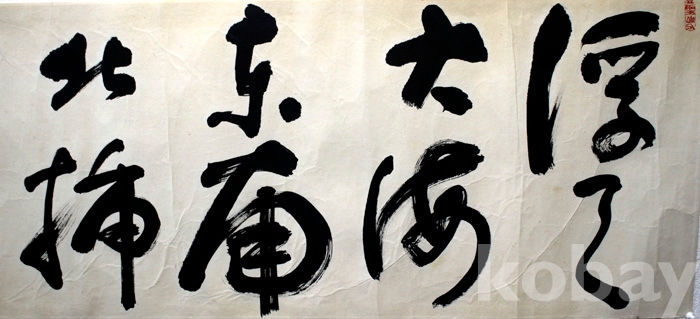 浮天
大海
東南
北揷
kobay